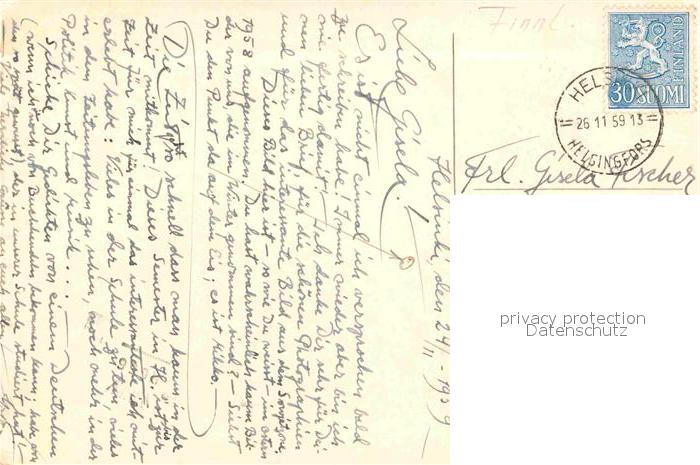 Helsinki, den 24/11 - 1959
Liebe Gisela!
Es ist nicht einmal ich versprochen bald
Zu schreiben habe. Immer wieder aber bin ich
nie fertig damit! Ich danke Dir sehr für Dei-
nen lieben Brief, für die schönen Photographien
und für das interessante Bild aus dem
Dieses Bild hier ist - wie Du weisst - im
1958 aufgenommen. Du hast wahrscheinlich kaum Bil-
der von uns, die im Winter genommen sind? - Siehst
Du den Punkt da auf dem Eis; es ist Mikko. -
Die Zeit so schnell dass man kaum in der
Zeit mitkommt. Dieses Semester in H. ist
Zeit für mich für einmal das interessanteste ich mit-
erlebt habe: Vieles in der Schule zu tun, vieles
in dem zu sehen, noch mehr in der
Politik, Kunst und Musik...
Schicke Dir Gedichten von einem Deutschen
(wenn ich noch vom Buchhandel bekommen kann; habe von
der in unserer Schule studiert hat!
an euch allen!
Finnl.
30 SUOMI
FINLAND
HELSINKI
26 11 59 13
HELSINGFORS
Frl. Gisela Fischer
privacy protection
Datenschutz